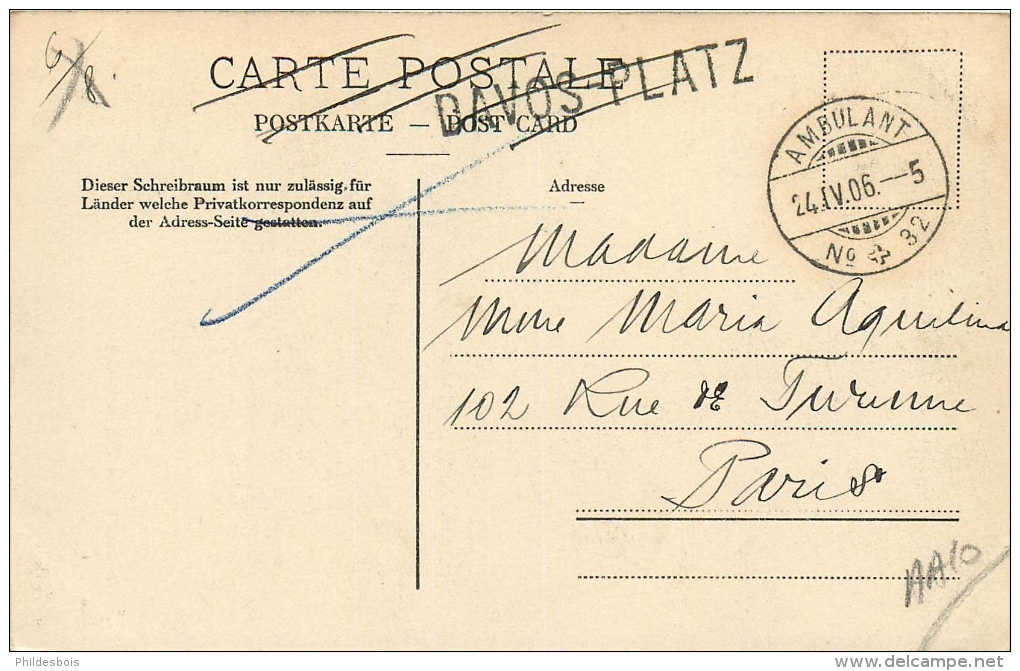 6/8
CARTE POSTALE
DAVOS-PLATZ
POSTKARTE — POST CARD
Dieser Schreibraum ist nur zulässig für
Länder welche Privatkorrespondenz auf
der Adress-Seite gestatten.
Adresse
AMBULANT
24.IV.06.—5
No 32
Madame
Mme Maria Aquilina
102 Rue DE Turenne
Paris
AA10
Phildesbois
delcampe.net